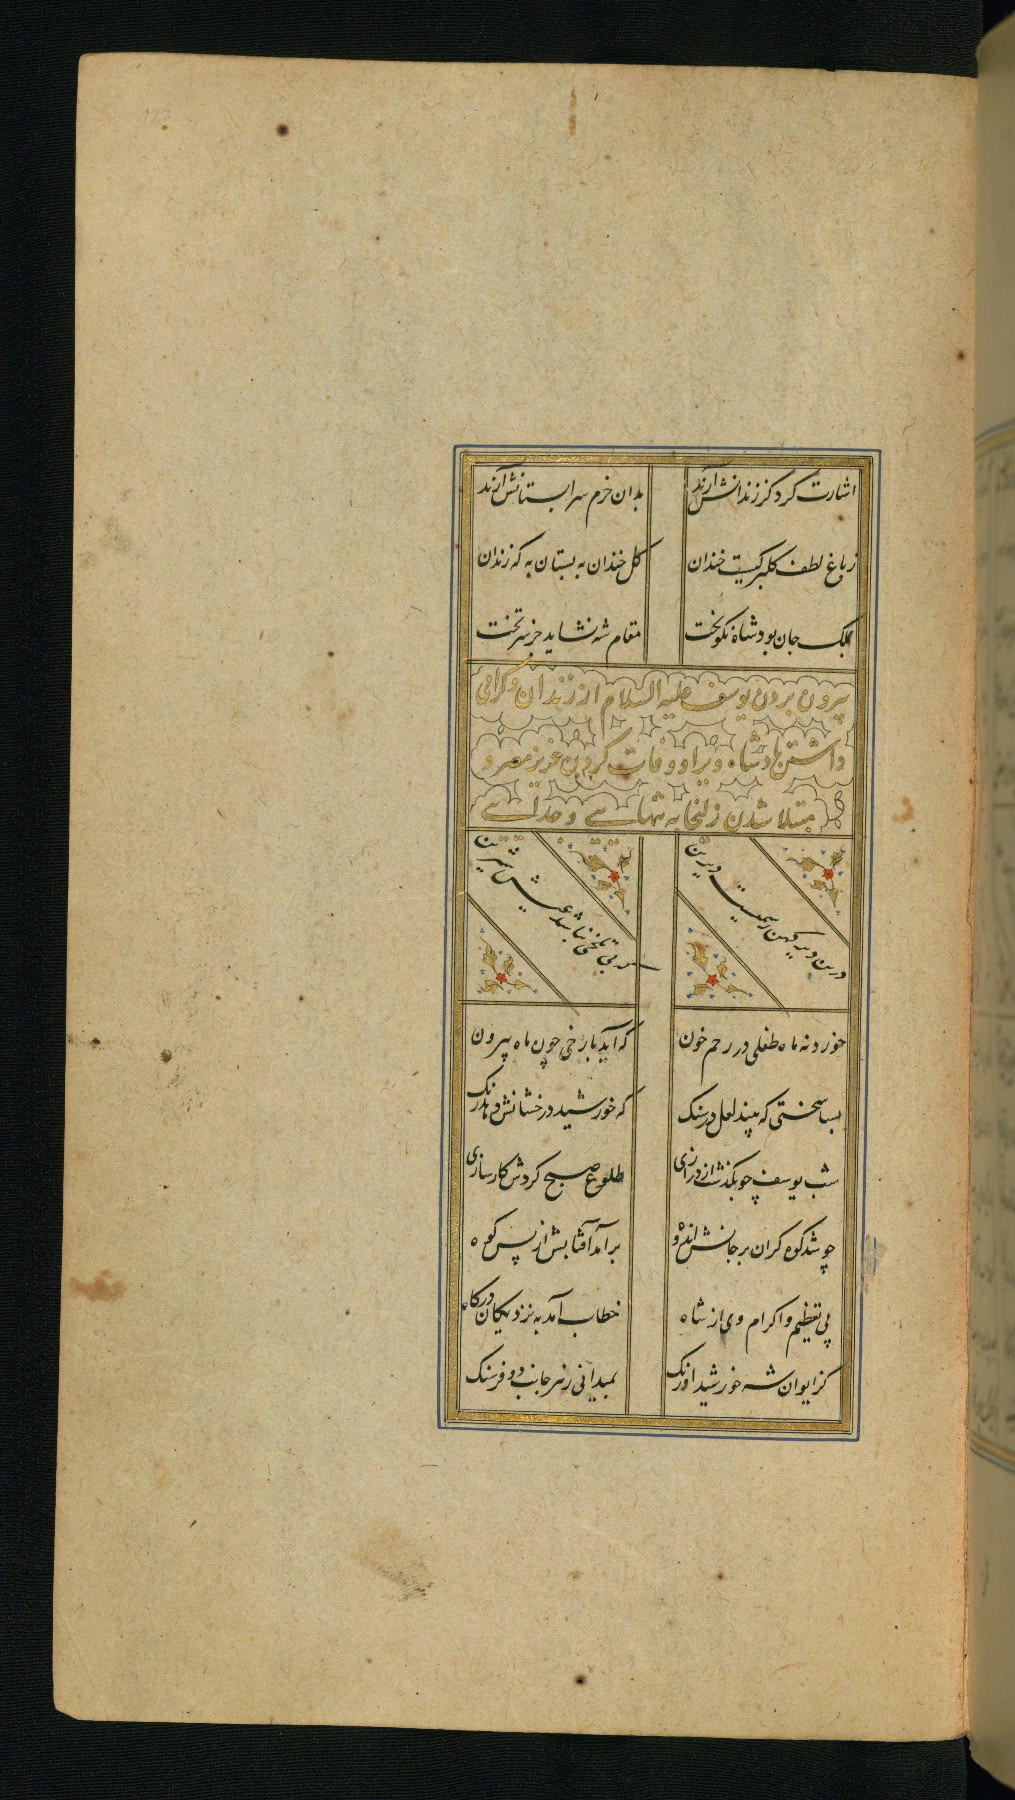 اشارت کرد کز زندانش آرند بدان خرم سرابستانش آرند
ز باغ لطف کلبرکیست خندان کل خندان به بستان به که زندان
بملک جان بود شاه نکوبخت مقام شه نشاید جز سر تخت
بیرون بردن یوسف علیه السلام از زندان و کرامی
داشتن پادشاه ویرا و وفات کردن عزیز مصر و
مبتلا شدن زلیخا به تنهایی و جدایی
درین دیر کهن رسمیست دیرین که بی تلخی نباشد عیش شیرین
خورد نه ماه طفلی در رحم خون که آید با رخی چون ماه بیرون
بسا سختی که بیند لعل در سنک که خورشید درخشانش دهد رنک
شب یوسف چو بکذشت از درازی طلوع صبح کردش کارسازی
چو شد کوه کران بر جانش اندوه برآمد آفتابش از پس کوه
پی تعظیم و اکرام وی از شاه خطاب آمد به نزدیکان درکاه
کز ایوان شه خورشید اورنک بمیدانی ز هر جانب دو فرسنک